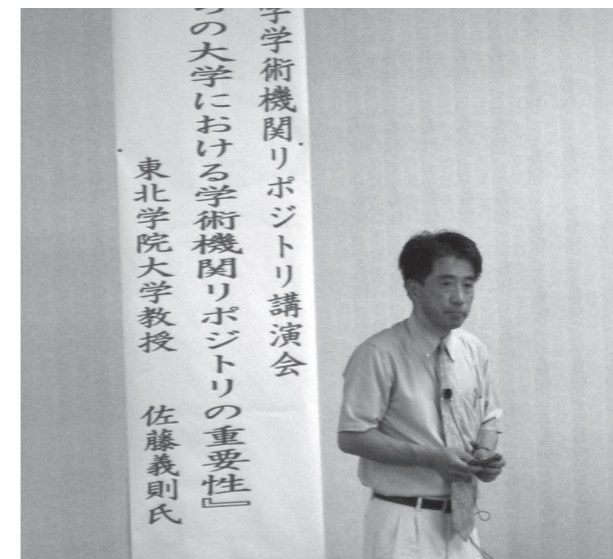 学学術機関リポジトリ講演会
らの大学における学術機関リポジトリの重要性』
東北学院大学教授 佐藤義則氏